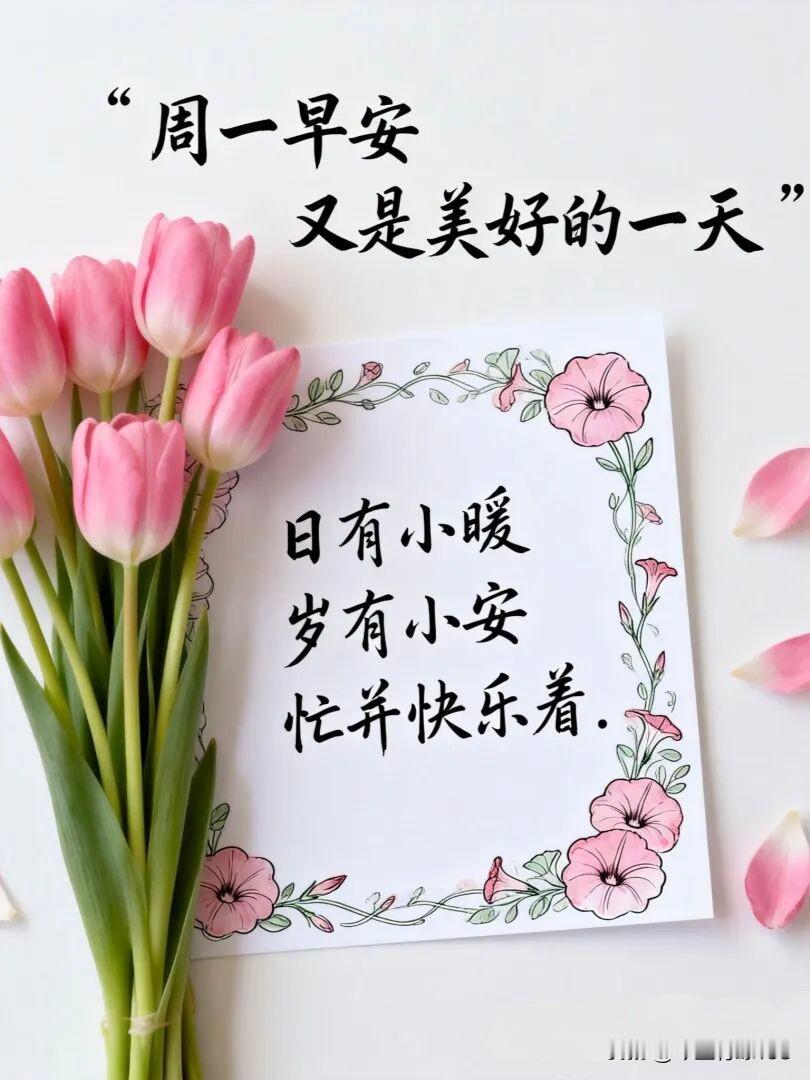 “周一早安
又是美好的一天”
日有小暖
岁有小安
忙并快乐着.